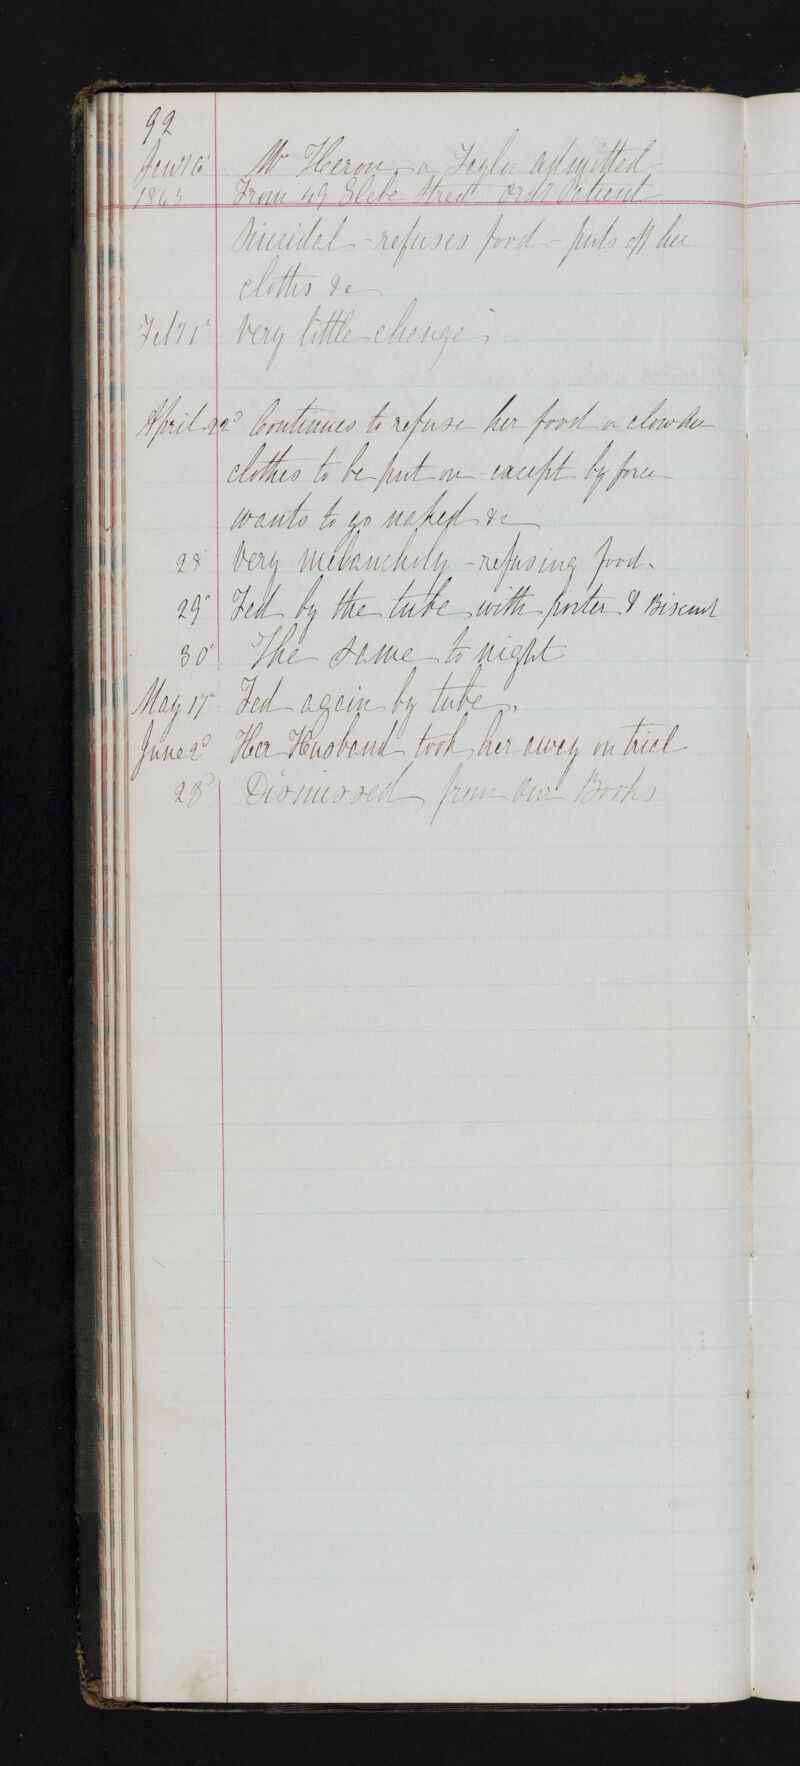 92
Jany 6 Mrs Heron or Taylor admitted
1865 From 49 Glebe Street Ordy Patient
Suicidal - refuses food - puts off her
cloths &c
Feby 1st Very little change
April 22d Continues to refuse her food or allow her
clothes to be put on except by force
wants to go naked &c
28 Very melancholy - refusing food.
29th Fed by the tube with porter & Biscuit
30th The same to night
May 17th Fed again by tube.
June 2d Her Husband took her away on trial
28th Dismissed from our Books